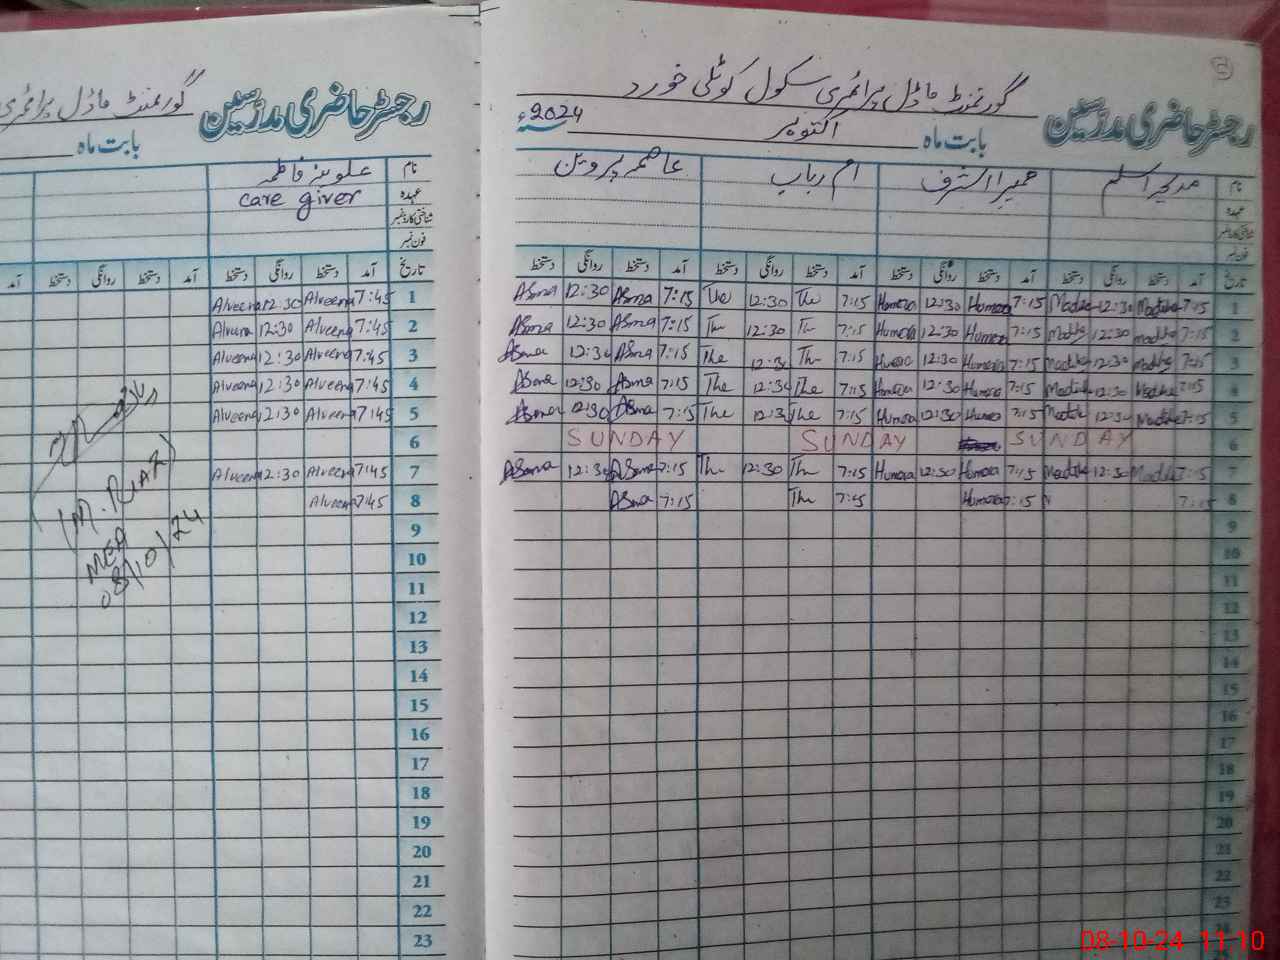 گورنمنٹ ماڈل پرائمری سکول کوٹلی خورد
رجسٹر حاضری مدرسین
بابت ماہ اکتوبر 2024ء
نام مدیحہ اسلم حمیرا اشرف ام رباب عاصمہ پروین
عہدہ
شناختی کارڈ نمبر
فون نمبر
تاریخ آمد دستخط روانگی دستخط آمد دستخط روانگی دستخط آمد دستخط روانگی دستخط آمد دستخط روانگی دستخط
Asma 12:30 Asma 7:15 The 12:30 The 7:15 Humera 12:30 Humera 7:15 Madiha 12:30 Madiha 7:15 1
Asma 12:30 Asma 7:15 The 12:30 The 7:15 Humera 12:30 Humera 7:15 Madiha 12:30 Madiha 7:15 2
Asma 12:30 Asma 7:15 The 12:30 The 7:15 Humera 12:30 Humera 7:15 Madiha 12:30 Madiha 7:15 3
Asma 12:30 Asma 7:15 The 12:30 The 7:15 Humera 12:30 Humera 7:15 Madiha 12:30 Madiha 7:15 4
Asma 12:30 Asma 7:15 The 12:30 The 7:15 Humera 12:30 Humera 7:15 Madiha 12:30 Madiha 7:15 5
SUNDAY SUNDAY SUNDAY 6
Asma 12:30 Asma 7:15 The 12:30 The 7:15 Humera 12:30 Humera 7:15 Madiha 12:30 Madiha 7:15 7
Asma 7:15 The 7:15 Humera 7:15 7:15 8
9
10
11
12
13
14
15
16
17
18
19
20
21
22
23
24
گورنمنٹ ماڈل پرائمری
رجسٹر حاضری مدرسین
بابت ماہ
نام علوینہ فاطمہ
عہدہ care giver
شناختی کارڈ نمبر
فون نمبر
تاریخ آمد دستخط روانگی دستخط آمد دستخط روانگی دستخط آمد
Alveena 12:30 Alveena 7:45 1
Alveena 12:30 Alveena 7:45 2
Alveena 12:30 Alveena 7:45 3
Alveena 12:30 Alveena 7:45 4
Alveena 12:30 Alveena 7:45 5
6
Alveena 12:30 Alveena 7:45 7
Alveena 7:45 8
9
10
11
12
13
14
15
16
17
18
19
20
21
22
23
(M. RIAZ)
MEA
08/10/24
08-10-24 11:10